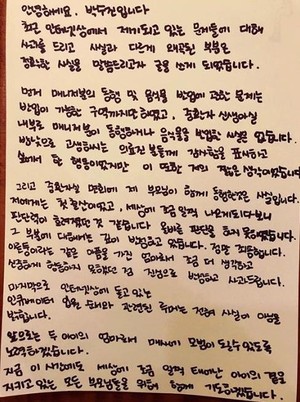 안녕하세요, 박수진입니다
최근 인터넷상에서 제기되고 있는 문제들에 대해
사과를 드리고 사실과 다르게 왜곡된 부분은
정확한 사실을 말씀드리고자 글을 쓰게 되었습니다.
먼저 매니저분의 동행 및 음식물 반입에 관한 문제는
반입이 가능한 구역까지만 하였고, 중환자 신생아실
내부로 매니저분이 동행하거나 음식물을 반입한 사실은 없습니다.
밤낮으로 고생하시는 의료진 분들께 감사함을 표시하고
싶어서 한 행동이었지만 이 또한 저의 짧은 생각이었습니다.
그리고 중환자실 면회에 제 부모님이 함께 동행한것은 사실입니다.
저에게는 첫 출산이었고, 세상에 조금 일찍 나오게되다보니
판단력이 흐려졌던 것 같습니다. 올바른 판단을 하지 못하였습니다.
그 부분에 대해서는 깊이 반성하고 있습니다. 정말 죄송합니다.
이른둥이라는 같은 아픔을 가진 엄마로서 조금 더 생각하고
신중하게 행동하지 못했던 점 진심으로 반성하고 사과드립니다.
마지막으로 인터넷상에 돌고 있는
인큐베이터 입원 순서와 관련된 루머는 전혀 사실이 아님을
밝힙니다.
앞으로는 두 아이의 엄마로서 매사에 모범이 될 수 있도록
노력하겠습니다.
지금 이 시간에도 세상에 조금 일찍 태어난 아이의 곁을
지키고 있는 모든 부모님들을 위해 함께 기도하겠습니다.